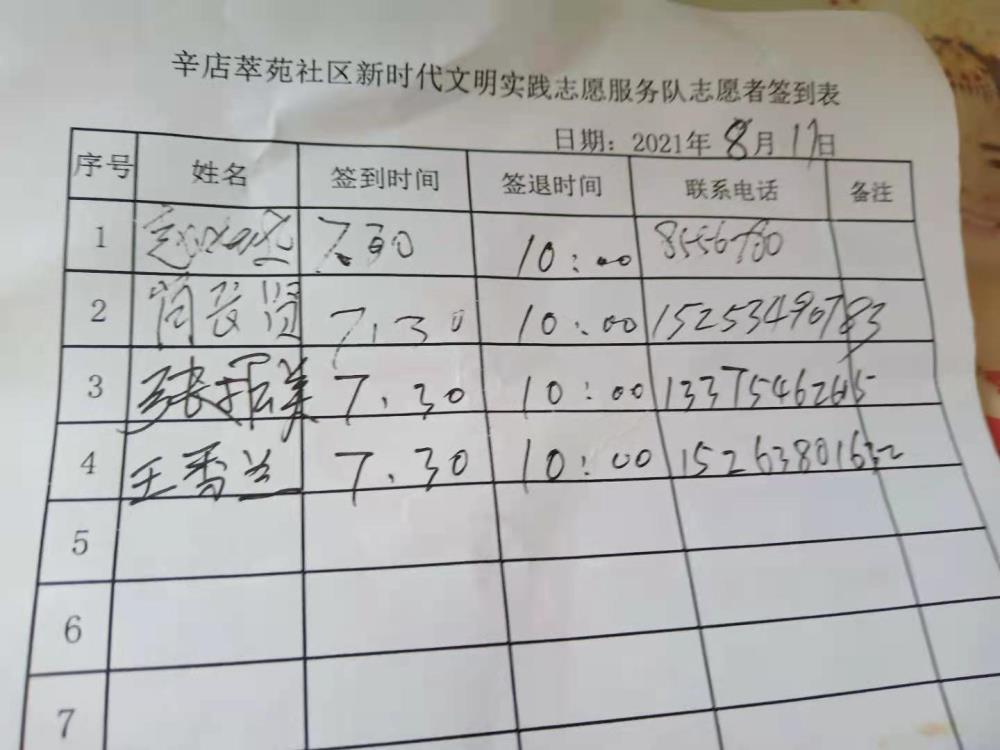 辛店萃苑社区新时代文明实践志愿服务队志愿者签到表
日期：2021年 8月 17日
序号 姓名 签到时间 签退时间 联系电话 备注
1 7.30 10:00 8556780
2 7.30 10:00 15253496783
3 张 美 7.30 10:00
4 王香兰 7.30 10:00 15263801632
5
6
7